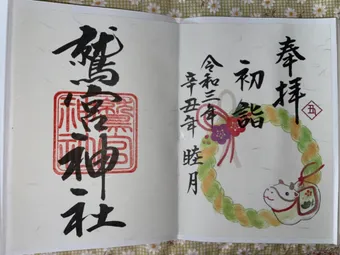 奉拝
丑
初詣
令和三年
辛丑年 睦月
鷲宮神社